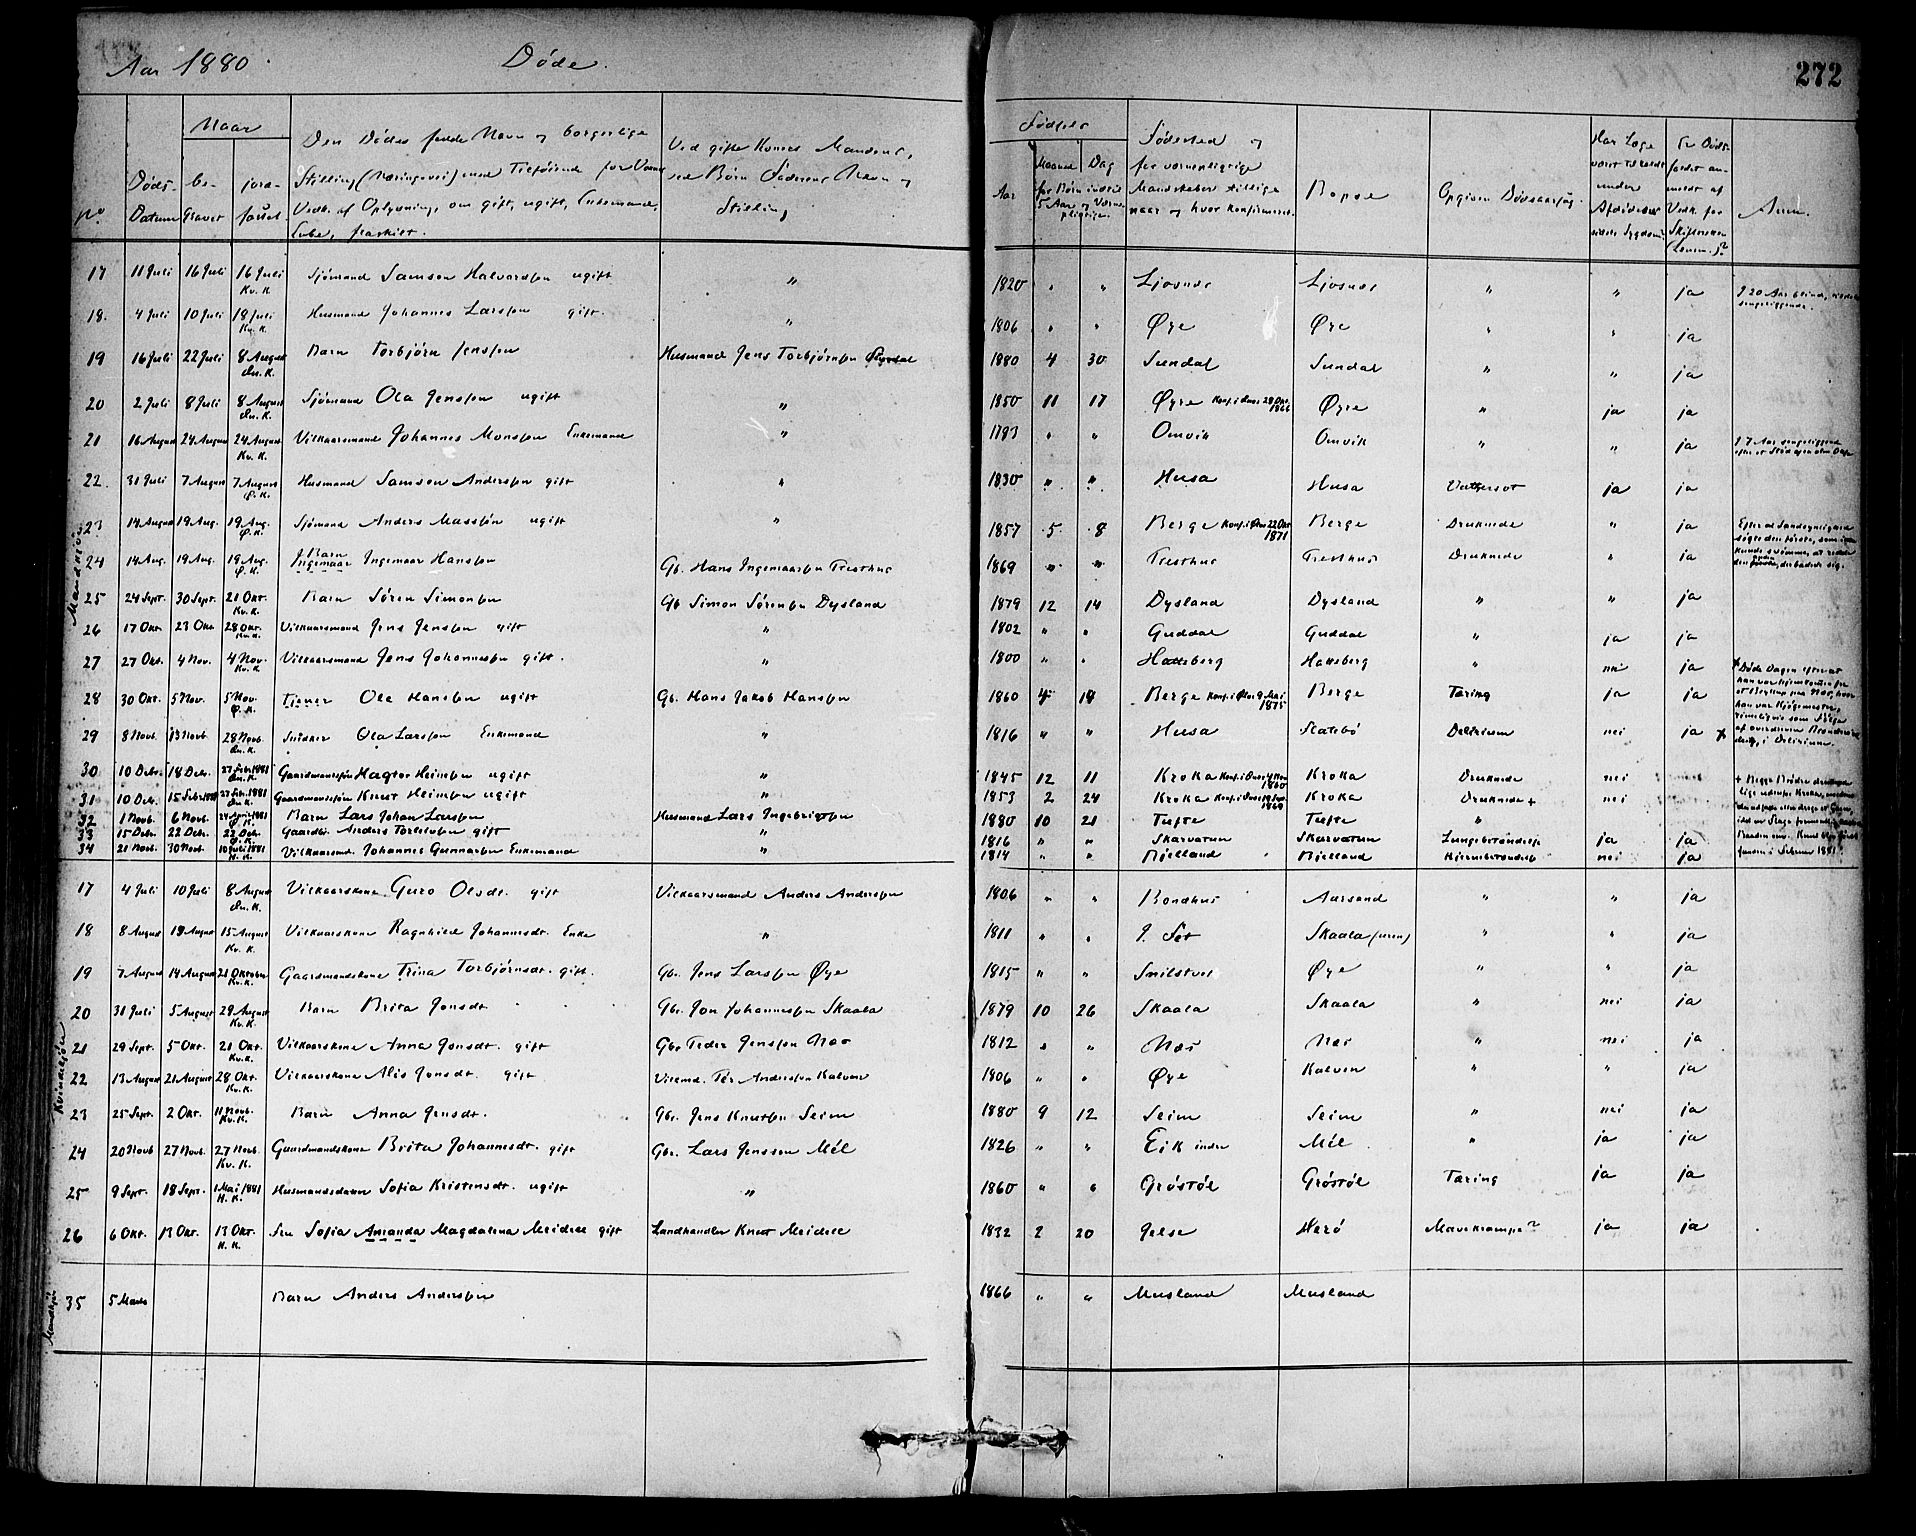 Aar 1880. Døde. 272
No. Døds-Datum Naar be-gravet jorafæstet Den Dødes fulde Navn og borgerlige Stilling (Næringsvei) med Tilføiende for Voxnes Vedk. af Oplysning, om gift, ugift, Enkemand, Enke, fraskilt. Ved gifte Koners Mandens, ved Børn Faderens Navn og Stilling Fødsels Aar Maaned Dag for Børn indtil 5 Aar og Værnepligtige. Fødested og for værnepligtige Mandskaber tillige naar og hvor konfirmeret. Bopæl Opgiven Dødsaarsag. Har Læge været tilkaldt under Afdødes sidste Sygdom? Er Dødsfaldet anmeldt af Vedk. for Skifteretten (Lensm.)? Anm.
Mandkjøn
17 11 Juli 16 Juli 16 Juli Kv. K. Sjømand Samson Halvorssøn ugift " 1820 " " Ljosnes Ljosnes " " ja I 20 Aar blind, sengeliggende.
18. 4 Juli 10 Juli 18 Juli Kv. K. Husmand Johannes Larssøn gift. " 1806 " " Øye Øye " " ja
19 16 Juli 22 Juli 8 August Øn. K. Barn Torbjørn Jenssøn Husmand Jens Torbjørnsøn 1880 4 30 Sundal Sundal " " ja
20 2 Juli 8 Juli 8 August Øn. K. Sjømand Ola Jenssøn ugift " 1850 11 17 Øyre Konf. i Ønes 28 Okt. 1866 Øyre " ja ja
21 16 August 24 August 24 August Kv. K. Vilkaarsmand Johannes Monssøn Enkemand " 1793 " " Omvik Omvik " " ja I 7 Aar sengeliggende efter et Stød
22. 31 Juli 7 August 7 August Ø. K. Husmand Samson Anderssøn gift " 1830 " " Husa Husa Vattersot ja ja
23 14 August 19 Aug. 19 Aug. Ø. K. Sjømand Anders Masssøn ugift " 1857 5 8 Berge Konf. i Ønes 22 Okt 1871 Berge Druknede " ja Efter al Sandsynlighed søgte den første, som ikke kunde svømme, at redde den anden, der badede sig.
24 14 Aug. 19 Aug. 19 Aug. Ø. K. Barn Ingemaar Ingemaar Hanssøn Gb. Hans Ingemaarsøn Træsthus 1869 " " Træsthus Træsthus Druknede " ja
25 24 Sept. 30 Sept. 21 Okt. Kv. K. Barn Søren Simonsøn Gb Simon Sørensøn Dysland 1879 12 14 Dysland Dysland " " ja
26 17 Okt. 23 Okt 28 Okt. Kv. K. Vilkaarsmand Jens Jenssøn gift " 1802 " " Guddal Guddal " ja ja
27 27 Okt. 4 Nov. 4 Nov. Kv. K. Vilkaarsmand Jens Johannessøn gift. " 1800 " " Hatteberg Hatteberg " nei ja
28 30 Okt. 5 Nov. 5 Nov. Ø. K. Tjener Ole Hanssøn ugift Gb. Hans Jakob Hanssøn 1860 4 14 Berge Konf. i Ønes 9 Mai 1875 Berge Tæring ja ja
29 8 Novb. 13 Novb. 28 Novb. Øn. K. Snidker Ola Larssøn Enkemand " 1816 " " Husa Slattebø Delirium nei ja x x Døde Dagen efterat han var hjemkommen fra et Bryllup paa Næs, hvor han var Kjøgemester, rimeligvis som Følge af overdreven Brændevinsdrik, i Delirium.
30 10 Debr. 18 Deb. 27 Febr. 1881 Øn. K. Gaardmandssøn Hagtor Heimsøn ugift " 1845 12 11 Kroka Konf. i Ønes 4 Nov 1860 Kroka Druknede nei + Begge Brødre druknede lige udenfor Kroka,
31 10 Deb. 15 Febr 1881 27 Febr. 1881 Øn. K. Gaardmandssøn Knut Heimsøn ugift " 1853 2 24 Kroka Konf. i Ønes 1869 Kroka Druknede + nei
32 1 Novb. 6 Novb. 24 April 1881 Ø. K. Barn Lars Johan Larssøn Husmand Lars Ingebrigtsøn 1880 10 21 Tufte Tufte "
33 15 Debr. 22 Debr. 22 Deb. Ø. K. Gaardbr. Anders Torleivsøn gift " 1816 " " Skarvatun Skarvatun Lungebetændelse ja ja
34 21 Novb. 30 Novb. 10 Juli 1881 H. K. Vilkaarsmd. Johannes Gunnarsøn Enkemand " 1814 " " Bjelland Bjelland Hjernebetændelse nei ja
Kvindekjøn
17 4 Juli 10 Juli 8 August Øn. K. Vilkaarskone Guro Olsdt. gift Vilkaarsmand Anders Anderssøn 1806 " " Bondhus Aarsand " " ja
18 8 August 19 August 15 August Kv. K. Vilkaarskone Ragnhild Johannesdt. Enke " 1811 " " I. Sæt Skaala (uren) " " ja
19 7 August 14 August 21 Oktober Kv. K. Gaardmandskone Trina Torbjørnsdt. gift. Gbr. Jens Larssøn Øye 1815 " " Snilstvet Øye " " ja
20 31 Juli 5 August 29 August Kv. K. Barn Brita Jonsdt. Gbr. Jon Johannessøn Skaala 1879 10 26 Skaala Skaala " nei ja
21 29 Sept. 5 Okt. 21 Okt. Kv. K. Vilkaarskone Anna Jonsdt. gift Gbr Peder Jenssøn Næs 1812 " " Næs Næs " nei ja
22 13 August 21 August 28 Okt. Kv. K. Vilkaarskone Alis Jonsdt. gift Vilkmd. Per Anderssøn Kalven 1806 " " Øye Kalven " " ja
23 25 Sept. 2 Okt. 11 Novb. Kv. K. Barn Anna Jensdt. Gbr. Jens Knutsøn Seim 1880 9 12 Seim Seim " nei ja
24 20 Novb 27 Novb. 27 Novb. Kv. K. Gaardmandskone Brita Johannesdt. gift Gbr. Lars Jenssøn Mél 1826 " " Eik indre Mél " ja ja
25 9 Sept. 18 Sept. 1 Mai 1881 H. K. Husmandsdatter Sofia Kristensdt. ugift " 1860 " " Grøstøl Grøstøl Tæring ja ja
26 6 Okt. 13 Okt. 13 Okt. H. K. Fru Sofia Amanda Magdalena Meidell gift Landhandler Knut Meidell 1832 2 20 Jelse Herø Mavekrampe? ja ja
Mandkjøn
35 5 Marts Barn Anders Anderssøn 1866 " " Musland Musland